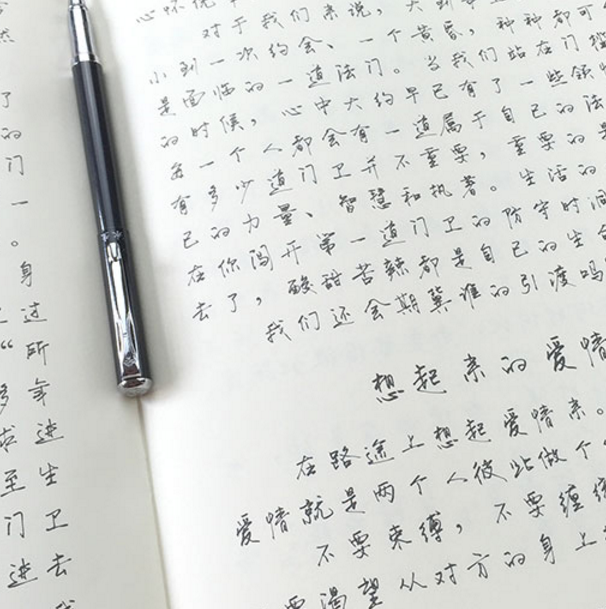 然
了
的
门
一
。
身
进
“所
多年
求进
至生
门卫
进去
我
对于我们来说，大到
小到一次约会、一个黄昏，种种都可
是面临的一道法门。当我们站在门
的时候，心中大约早已有了一些领
每一个人都会有一道属于自己的法
有多少道门卫并不重要，重要的是
己的力量、智慧和执著。生活的
在你闯开第一道门卫的防守时
去了，酸甜苦辣都是自己的生
我们还会期冀谁的引渡吗
想起来的爱情
在路途上想起爱情来。
爱情就是两个人彼此做个
不要束缚，不要缠绕
要渴望从对方的身上